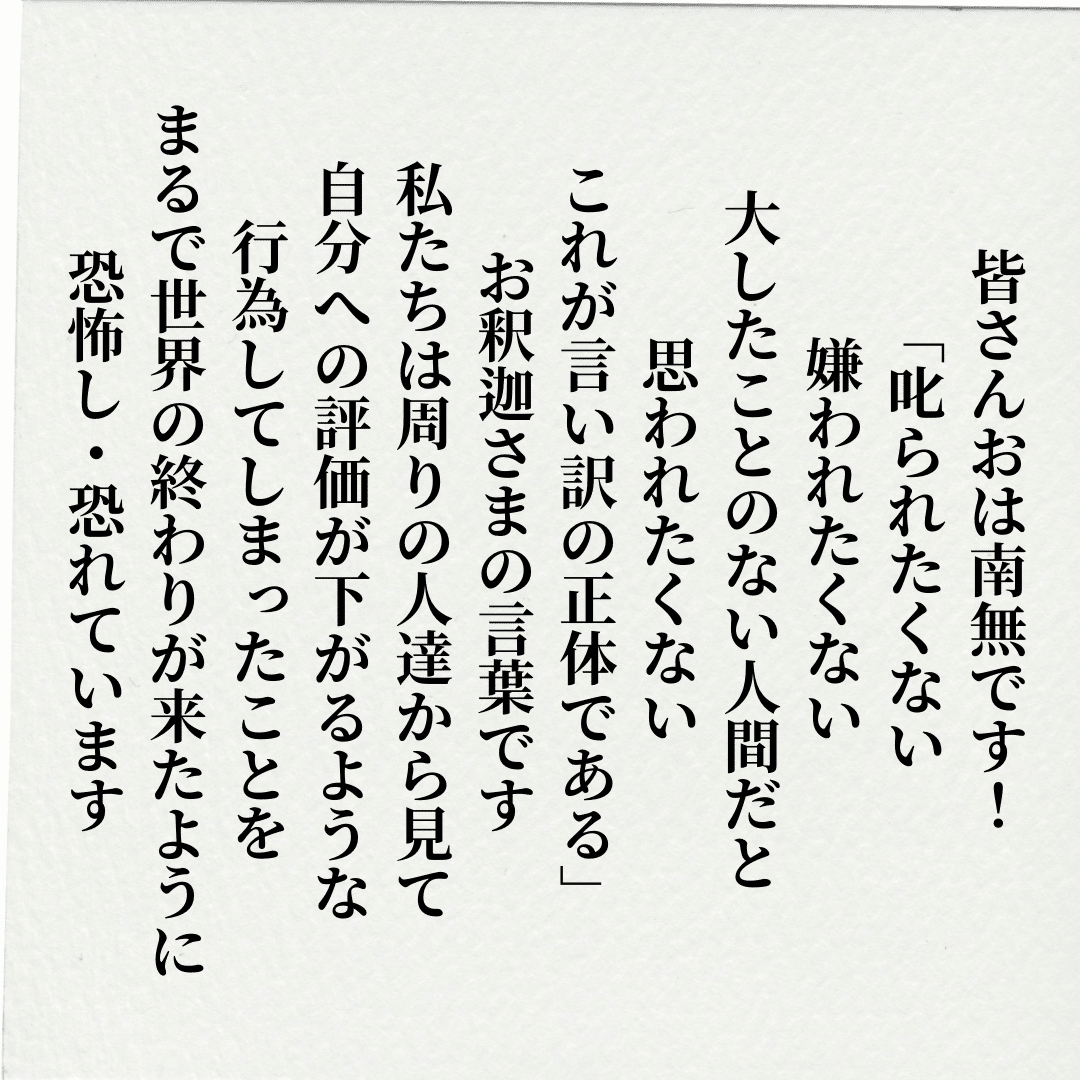 皆さんおは南無です！
「叱られたくない
嫌われたくない
大したことのない人間だと
思われたくない
これが言い訳の正体である」
お釈迦さまの言葉です
私たちは周りの人達から見て
自分への評価が下がるような
行為してしまったことを
まるで世界の終わりが来たように
恐怖し・恐れています